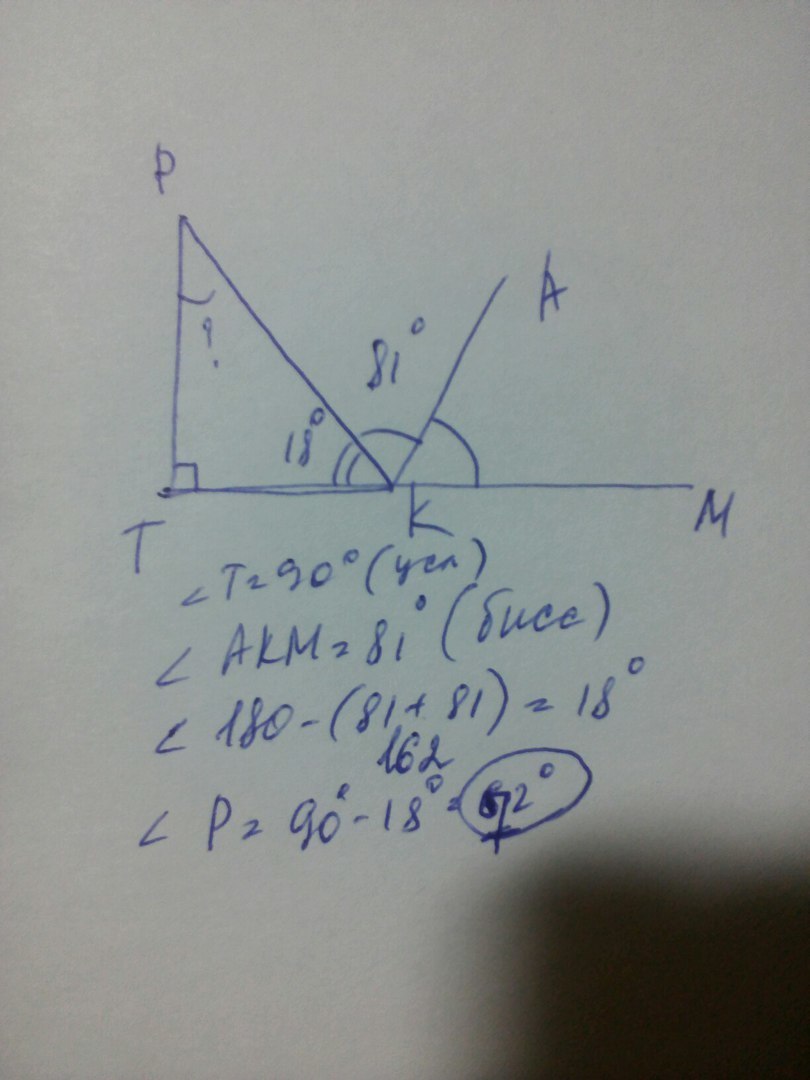 P
A
81°
?
18°
T
K
M
∠T=90° (усл)
∠ AKM=81° (бисс)
∠ 180-(81+81)=18°
162
∠ P=90°-18°=72°